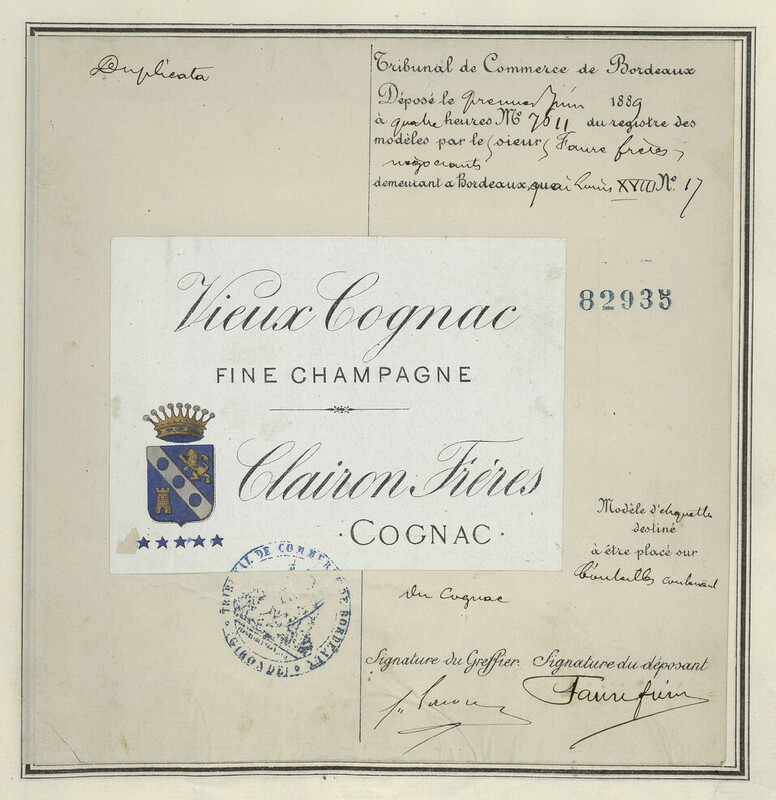 Duplicata
Tribunal de Commerce de Bordeaux
Déposé le premier Juin 1889
à quatre heures No 7611 du registre des
modèles par le sieur Faure frères
négociants
demeurant à Bordeaux, quai Louis XVIII No. 17
82935
Vieux Cognac
FINE CHAMPAGNE
Clairon Frères
·COGNAC·
Modèle d'étiquette
destiné
à être placé sur
bouteilles contenant
du cognac
TRIBUNAL DE COMMERCE DE BORDEAUX
(GIRONDE)
Signature du Greffier. Signature du déposant
Faure frères